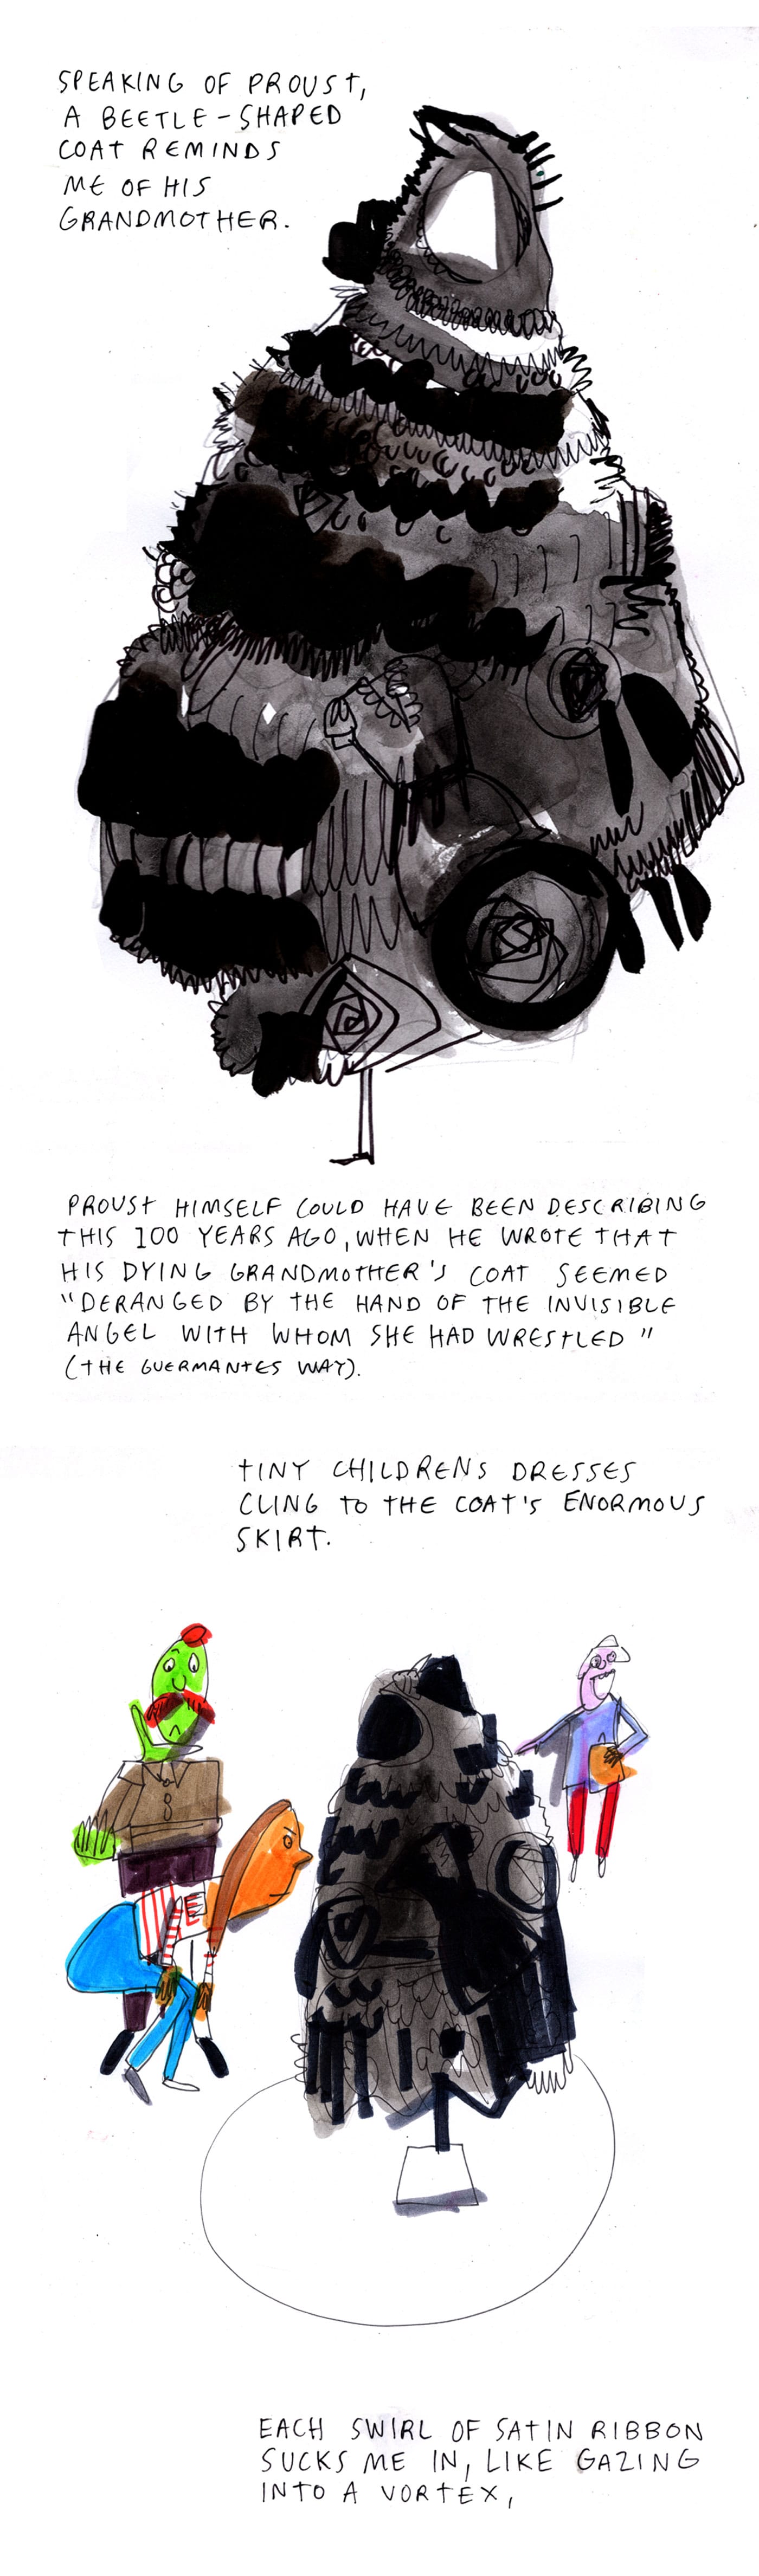 SPEAKING OF PROUST,
A BEETLE-SHAPED
COAT REMINDS
ME OF HIS
GRANDMOTHER.
PROUST HIMSELF COULD HAVE BEEN DESCRIBING
THIS 100 YEARS AGO, WHEN HE WROTE THAT
HIS DYING GRANDMOTHER'S COAT SEEMED
"DERANGED BY THE HAND OF THE INVISIBLE
ANGEL WITH WHOM SHE HAD WRESTLED"
(THE GUERMANTES WAY).
TINY CHILDRENS DRESSES
CLING TO THE COAT'S ENORMOUS
SKIRT.
E
EACH SWIRL OF SATIN RIBBON
SUCKS ME IN, LIKE GAZING
INTO A VORTEX,